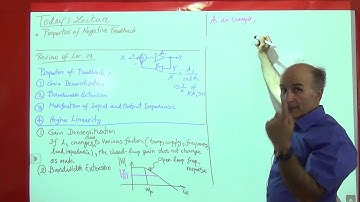 Today's Lecture
• Properties of Negative Feedback
Review of Lec. 29
Properties of Feedback:
① Gain Desensitization
② Bandwidth Extension
③ Modification of Input and Output Impedances
④ Higher Linearity
X
+
A₁
Y
K
① Gain Desensitization
If A₁ changes due to various factors (temp., supply, frequency,
load impedance), the closed-loop gain does not change
as much.
② Bandwidth Extension
Open-loop freq.
response
ω
As an example,